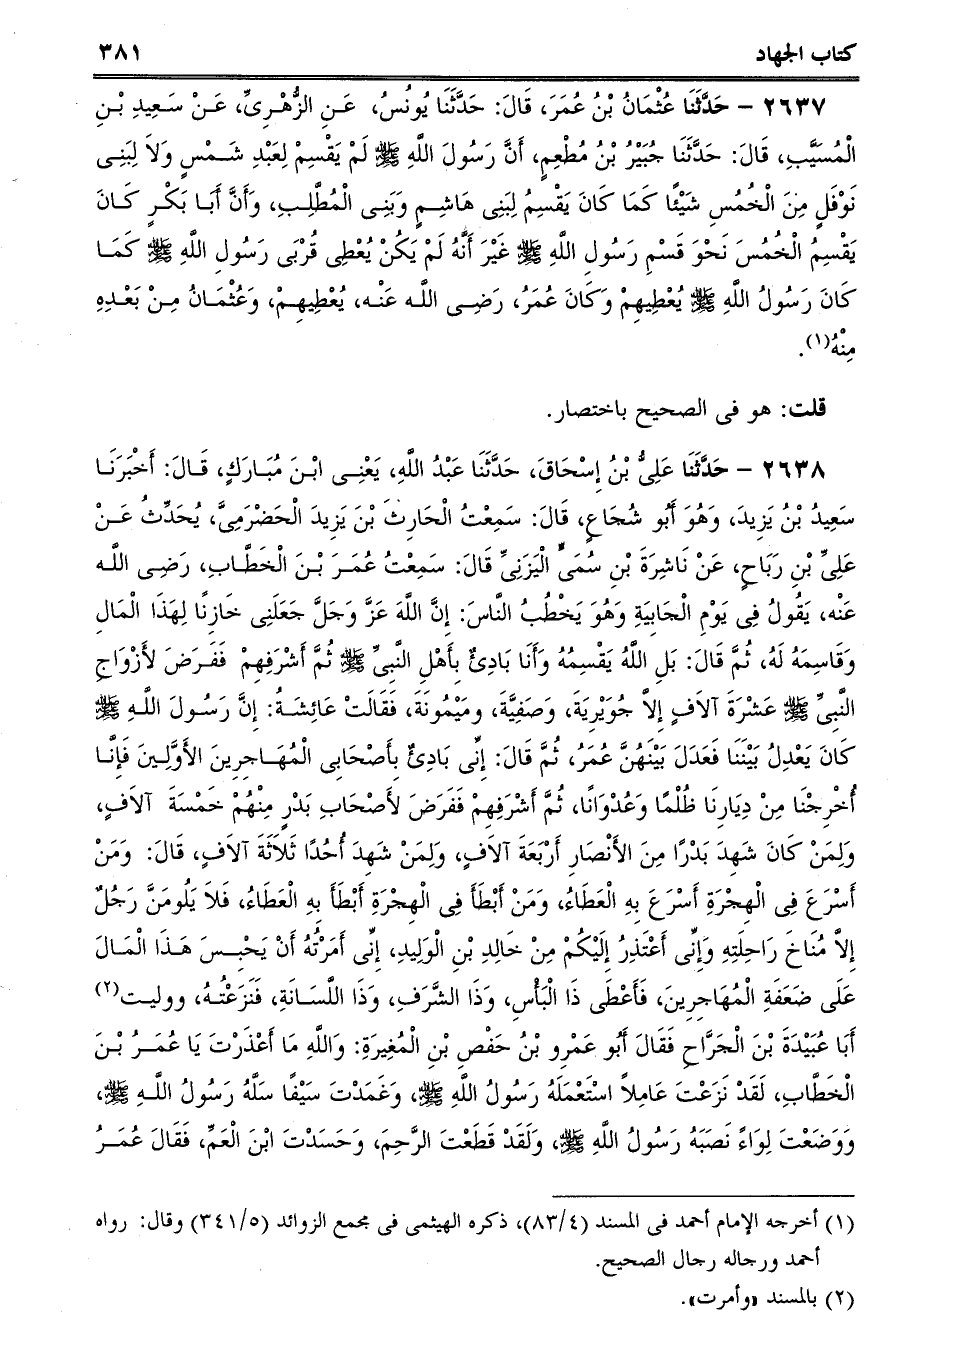 كتاب الجهاد ٣٨١
٢٦٣٧ - حَدَّثَنَا عُثْمَانُ بْنُ عُمَرَ، قَالَ: حَدَّثَنَا يُونُسُ، عَنِ الزُّهْرِىِّ، عَنْ سَعِيدِ بْنِ
الْمُسَيَّبِ، قَالَ: حَدَّثَنَا جُبَيْرُ بْنُ مُطْعِمٍ، أَنَّ رَسُولَ اللَّهِ ﷺ لَمْ يَقْسِمْ لِعَبْدِ شَمْسٍ وَلَا لِبَنِى
نَوْفَلٍ مِنَ الْخُمُسِ شَيْئًا كَمَا كَانَ يَقْسِمُ لِبَنِى هَاشِمٍ وَبَنِى الْمُطَّلِبِ، وَأَنَّ أَبَا بَكْرٍ كَانَ
يَقْسِمُ الْخُمُسَ نَحْوَ قَسْمِ رَسُولِ اللَّهِ ﷺ غَيْرَ أَنَّهُ لَمْ يَكُنْ يُعْطِى قُرْبَى رَسُولِ اللَّهِ ﷺ كَمَا
كَانَ رَسُولُ اللَّهِ ﷺ يُعْطِيهِمْ وَكَانَ عُمَرُ، رَضِى اللَّه عَنْه، يُعْطِيهِمْ، وَعُثْمَانُ مِنْ بَعْدِهِ
مِنْهُ(١).
قلت: هو فى الصحيح باختصار.
٢٦٣٨ - حَدَّثَنَا عَلِىُّ بْنُ إِسْحَاقَ، حَدَّثَنَا عَبْدُ اللَّهِ، يَعْنِى ابْنَ مُبَارَكٍ، قَالَ: أَخْبَرَنَا
سَعِيدُ بْنُ يَزِيدَ، وَهُوَ أَبُو شُجَاعٍ، قَالَ: سَمِعْتُ الْحَارِثَ بْنَ يَزِيدَ الْحَضْرَمِىَّ، يُحَدِّثُ عَنْ
عَلِىِّ بْنِ رَبَاحٍ، عَنْ نَاشِرَةَ بْنِ سُمَىٍّ الْيَزَنِىِّ قَالَ: سَمِعْتُ عُمَرَ بْنَ الْخَطَّابِ، رَضِى اللَّه
عَنْه، يَقُولُ فِى يَوْمِ الْجَابِيَةِ وَهُوَ يَخْطُبُ النَّاسَ: إِنَّ اللَّهَ عَزَّ وَجَلَّ جَعَلَنِى خَازِنًا لِهَذَا الْمَالِ
وَقَاسِمَهُ لَهُ، ثُمَّ قَالَ: بَلِ اللَّهُ يَقْسِمُهُ وَأَنَا بَادِئٌ بِأَهْلِ النَّبِىِّ ﷺ ثُمَّ أَشْرَفِهِمْ فَفَرَضَ لأَزْوَاجِ
النَّبِىِّ ﷺ عَشْرَةَ آلَافٍ إِلاَّ جُوَيْرِيَةَ، وَصَفِيَّةَ، وَمَيْمُونَةَ، فَقَالَتْ عَائِشَةُ: إِنَّ رَسُولَ اللَّهِ ﷺ
كَانَ يَعْدِلُ بَيْنَنَا فَعَدَلَ بَيْنَهُنَّ عُمَرُ، ثُمَّ قَالَ: إِنِّى بَادِئٌ بِأَصْحَابِى الْمُهَاجِرِينَ الأَوَّلِينَ فَإِنَّا
أُخْرِجْنَا مِنْ دِيَارِنَا ظُلْمًا وَعُدْوَانًا، ثُمَّ أَشْرَفِهِمْ فَفَرَضَ لأَصْحَابِ بَدْرٍ مِنْهُمْ خَمْسَةَ آلَافٍ،
وَلِمَنْ كَانَ شَهِدَ بَدْرًا مِنَ الأَنْصَارِ أَرْبَعَةَ آلَافٍ، وَلِمَنْ شَهِدَ أُحُدًا ثَلَاثَةَ آلَافٍ، قَالَ: وَمَنْ
أَسْرَعَ فِى الْهِجْرَةِ أَسْرَعَ بِهِ الْعَطَاءُ، وَمَنْ أَبْطَأَ فِى الْهِجْرَةِ أَبْطَأَ بِهِ الْعَطَاءُ، فَلَا يَلُومَنَّ رَجُلٌ
إِلاَّ مُنَاخَ رَاحِلَتِهِ وَإِنِّى أَعْتَذِرُ إِلَيْكُمْ مِنْ خَالِدِ بْنِ الْوَلِيدِ، إِنِّى أَمَرْتُهُ أَنْ يَحْبِسَ هَذَا الْمَالَ
عَلَى ضَعَفَةِ الْمُهَاجِرِينَ، فَأَعْطَى ذَا الْبَأْسِ، وَذَا الشَّرَفِ، وَذَا اللَّسَانَةِ، فَنَزَعْتُهُ، ووليت(٢)
أَبَا عُبَيْدَةَ بْنَ الْجَرَّاحِ فَقَالَ أَبُو عَمْرِو بْنُ حَفْصِ بْنِ الْمُغِيرَةِ: وَاللَّهِ مَا أَعْذَرْتَ يَا عُمَرُ بْنَ
الْخَطَّابِ، لَقَدْ نَزَعْتَ عَامِلاً اسْتَعْمَلَهُ رَسُولُ اللَّهِ ﷺ، وَغَمَدْتَ سَيْفًا سَلَّهُ رَسُولُ اللَّهِ ﷺ،
وَوَضَعْتَ لِوَاءً نَصَبَهُ رَسُولُ اللَّهِ ﷺ، وَلَقَدْ قَطَعْتَ الرَّحِمَ، وَحَسَدْتَ ابْنَ الْعَمِّ، فَقَالَ عُمَرُ
(١) أخرجه الإمام أحمد فى المسند (٨٣/٤)، ذكره الهيثمى فى مجمع الزوائد (٣٤١/٥) وقال: رواه
أحمد ورجاله رجال الصحيح.
(٢) بالمسند «وأمرت».